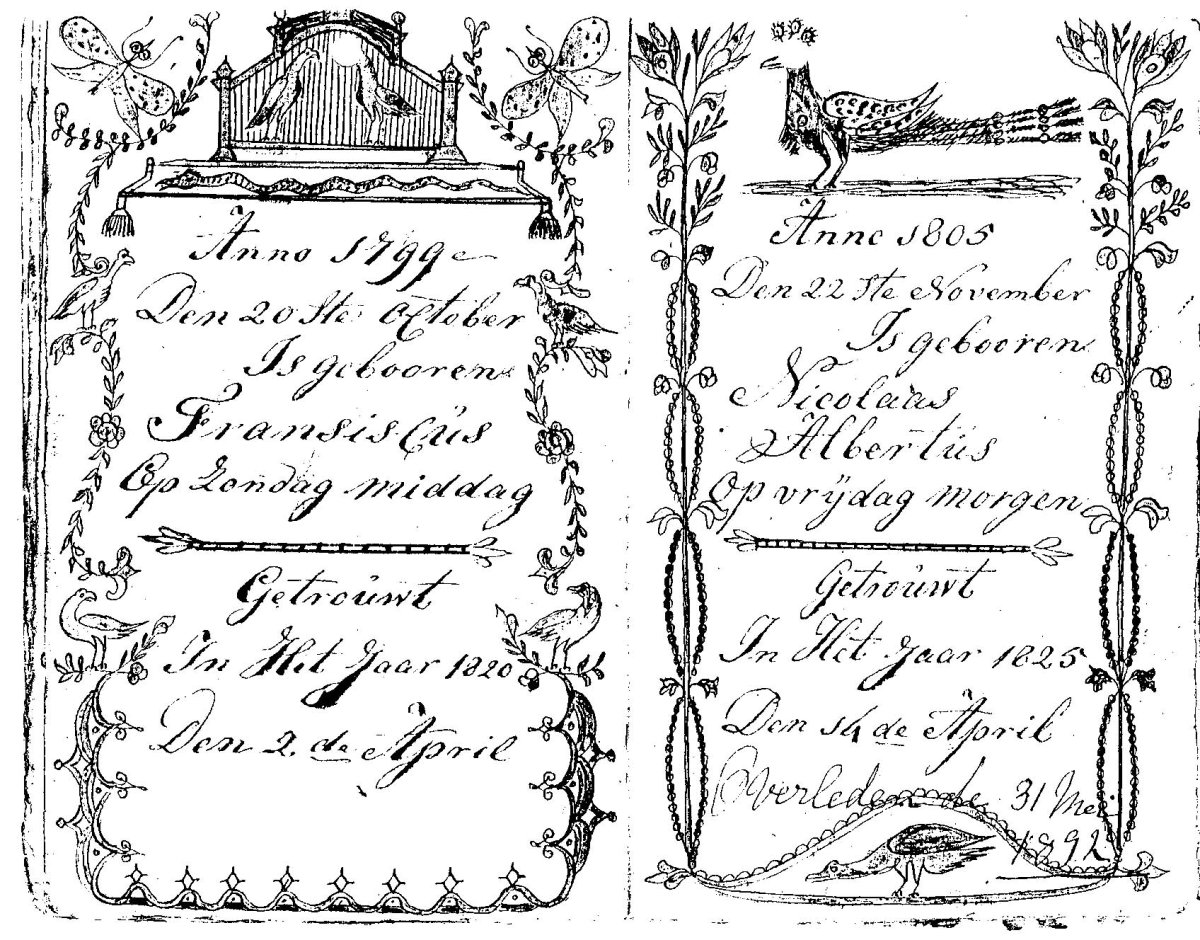 Anno 1799
Den 20 Ste October
Is gebooren
Fransiscus
Op Zondag middag
Getrouwt
In Het Jaar 1820
Den 2. de April
Anno 1805
Den 22 Ste November
Is gebooren
Nicolaas
Albertus
Op vrijdag morgen
Getrouwt
In Het Jaar 1825
Den 14 de April
Overleden de 31 Mei
1892